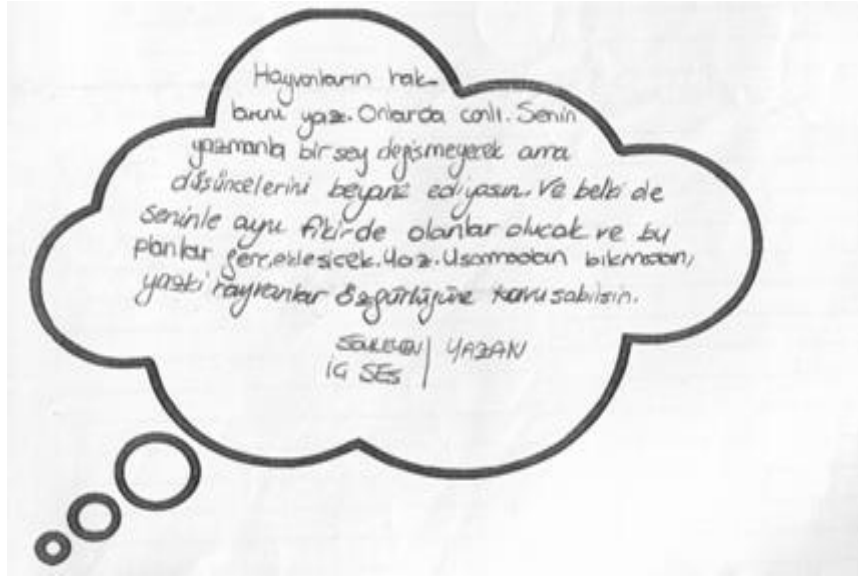 Hayvanların hak-
larını yaz. Onlarda canlı. Senin
yazmanla bir şey değişmeyecek ama
düşüncelerini beyan ediyosun. Ve belki de
seninle aynı fikirde olanlar olucak ve bu
planlar gerçekleşicek. Yaz. Usanmadan bıkmadan,
yazki hayvanlar özgürlüğüne kavuşabilsin.
YAZAN
İÇ SES